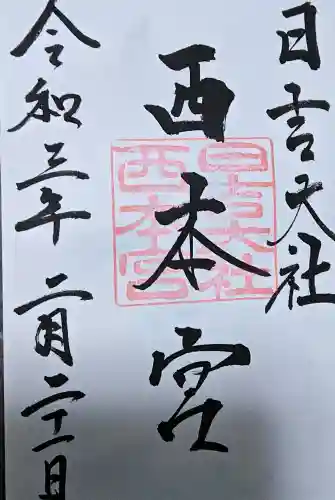 日吉大社
西本宮
日吉大社
西本宮
令和三年 二月二十一日